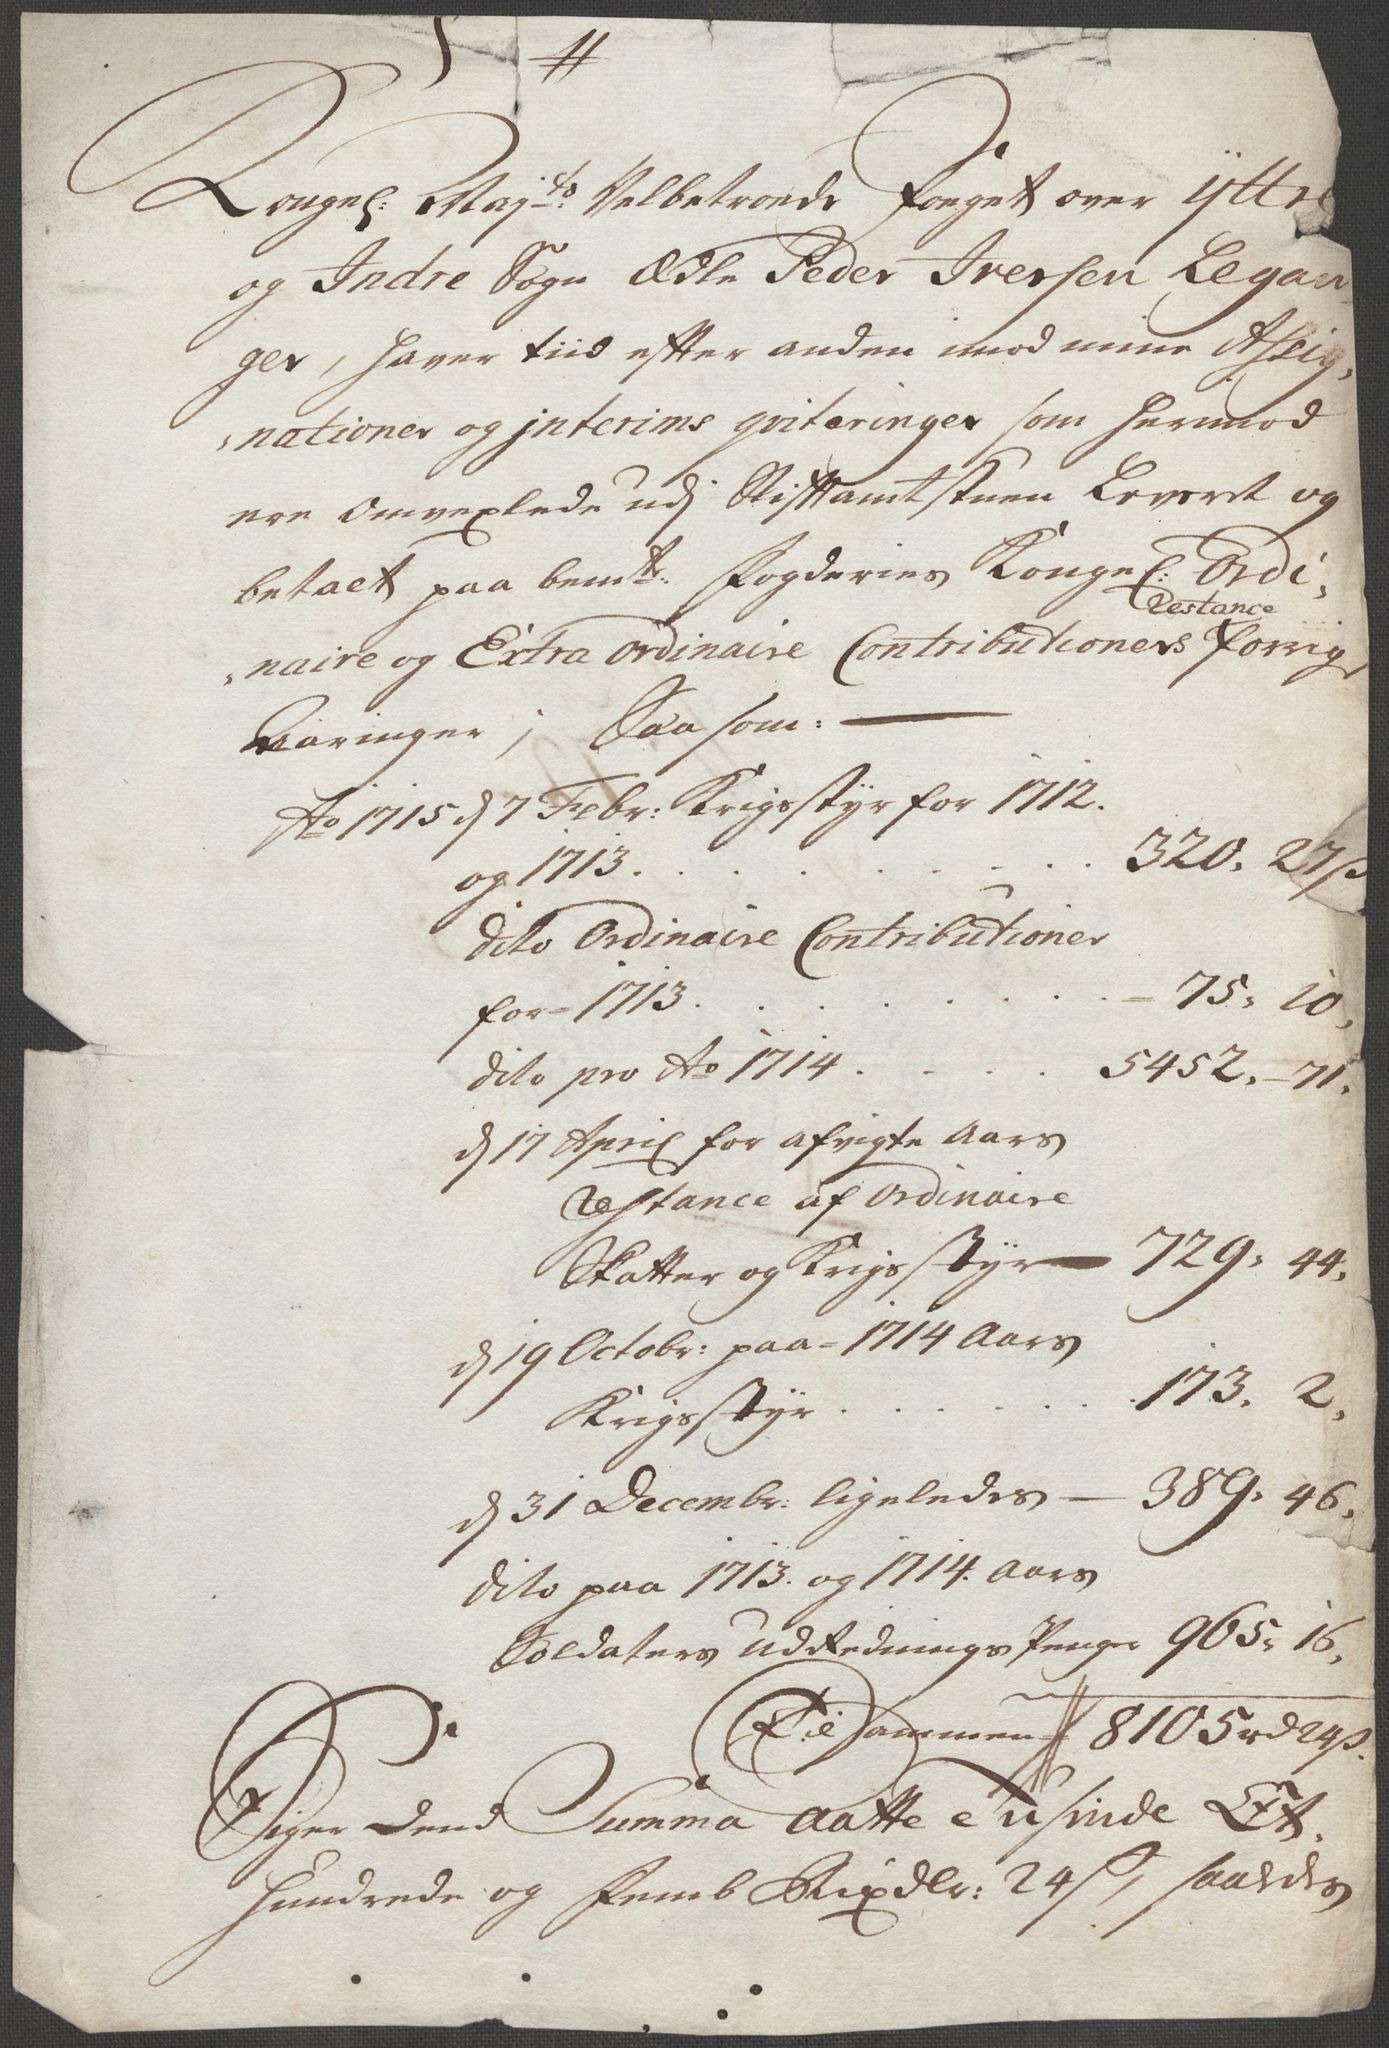 Kongel: May:ts Velbetroede Foeget over Ÿttre
og Indre Sogn Ædle Peder Iversen Legan-
ger, haver tiid efter anden imod mine Assig,
,nationer og jnterims qviteringer som hermod
ere omvexlede udj Stifftamtstuen Leveret og
betalt paa bemte: Fogderies Kongel: Ordi,
,naire og Extra Ordinaire Contributioners Restance forrig
Aaringer, Saasom:
Ao 1715 d 7 Febr: Krigsstÿr for 1712.
og 1713. . . . . . . . 320, 27ß
dito Ordinaire Contributioner
for 1713. . . . . . . . 75, 10,
dito pro Ao 1714 . . . . 5452, 71,
d 17 April for afvigte Aars
Restance af Ordinaire
Skatter og Krigsstÿr 729, 44,
d 19 Octobr: paa 1714 Aars
Krigsstÿr . . . . . . 173. 2,
d 31 Decembr: ligeledes 389, 46,
dito paa 1713. og 1714. Aars
Soldaters Udrednings Penge 965, 16,
Tilsammen 8105 rd 24ß.
Siger dend Summa Aatte Tusinde Et
Hundrede og Femb Rixdlr: 24ß, saaledes